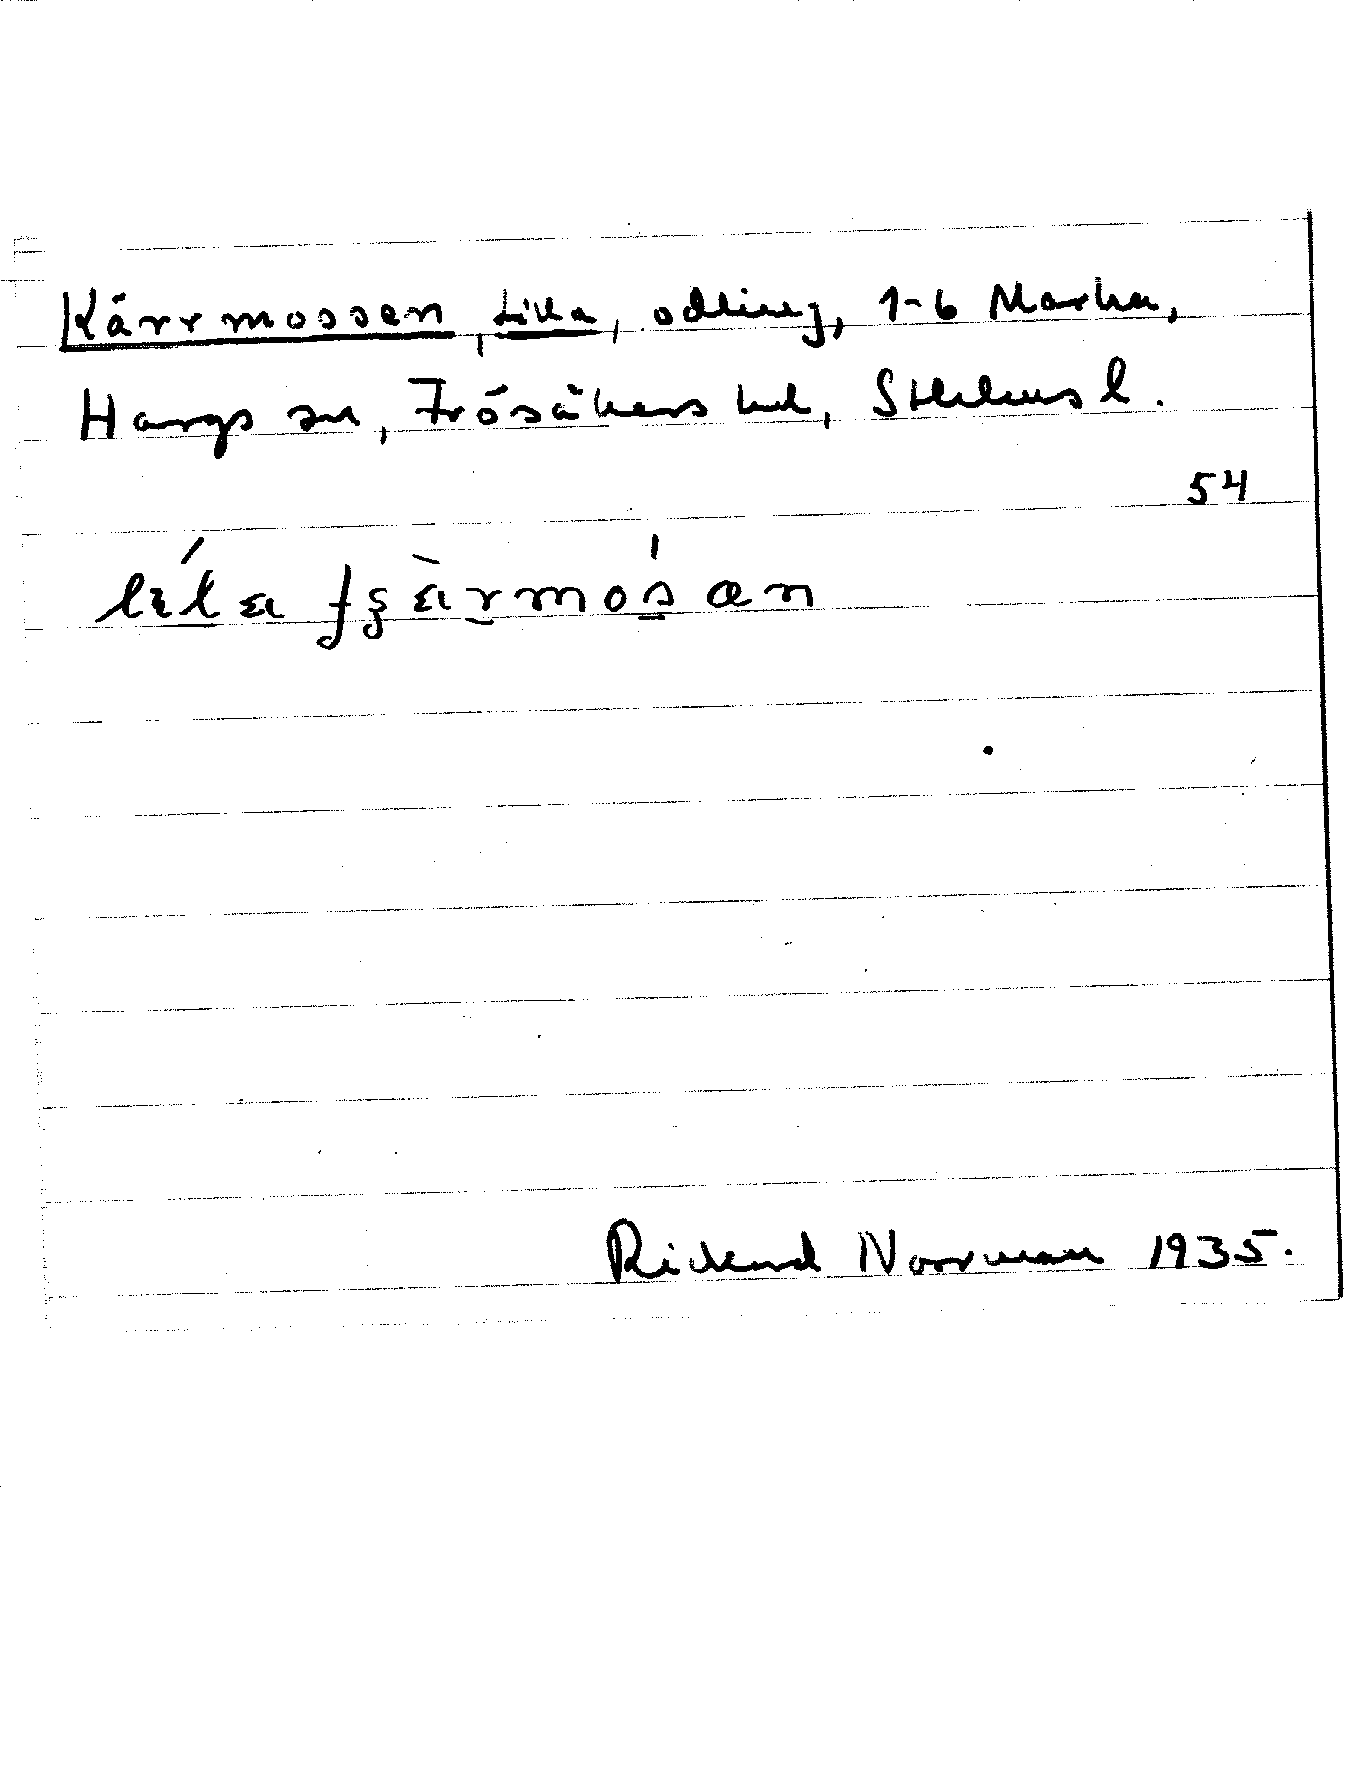 Kärrmossen, Lilla, odling, 1-6 Marka,
Hargs sn, Frösåkers hd, Sthlms l.
54
Rickard Norrman 1935.